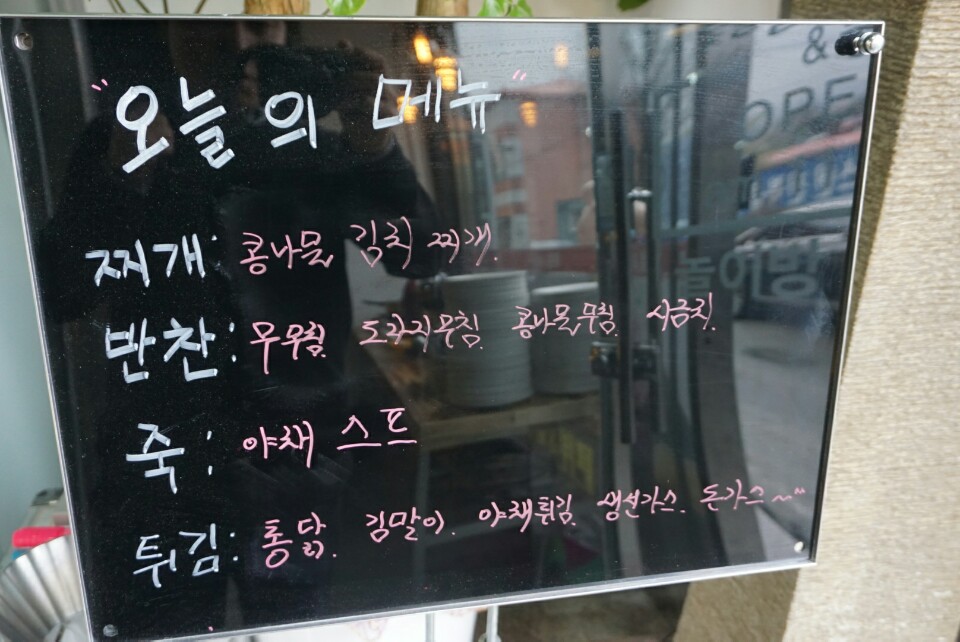 "오늘의 메뉴"
찌개: 콩나물 김치 찌개.
반찬: 무무침. 도라지무침. 콩나물무침. 시금치.
죽: 야채 스프
튀김: 통닭. 김말이. 야채튀김. 생선가스. 돈가스~^^
&
OPE
놀이방